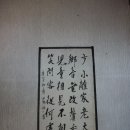 少小離家老大
鄉音無改鬢毛
兒童相見不相
笑問客從何處